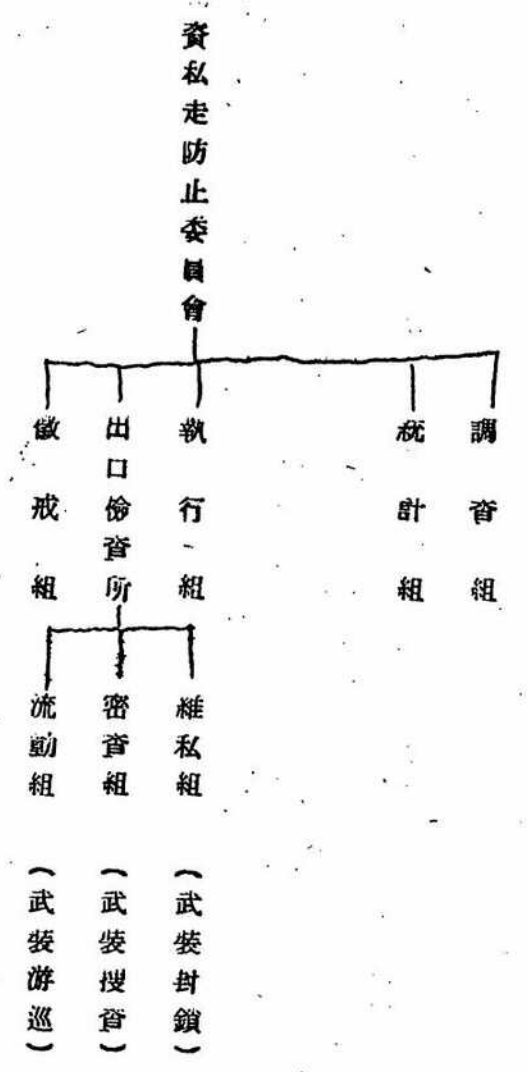 資私走防止委員會
調查組
統計組
執行組
出口檢查所
懲戒組
緝私組
密查組
流動組
(武裝封鎖)
(武裝搜查)
(武裝游巡)